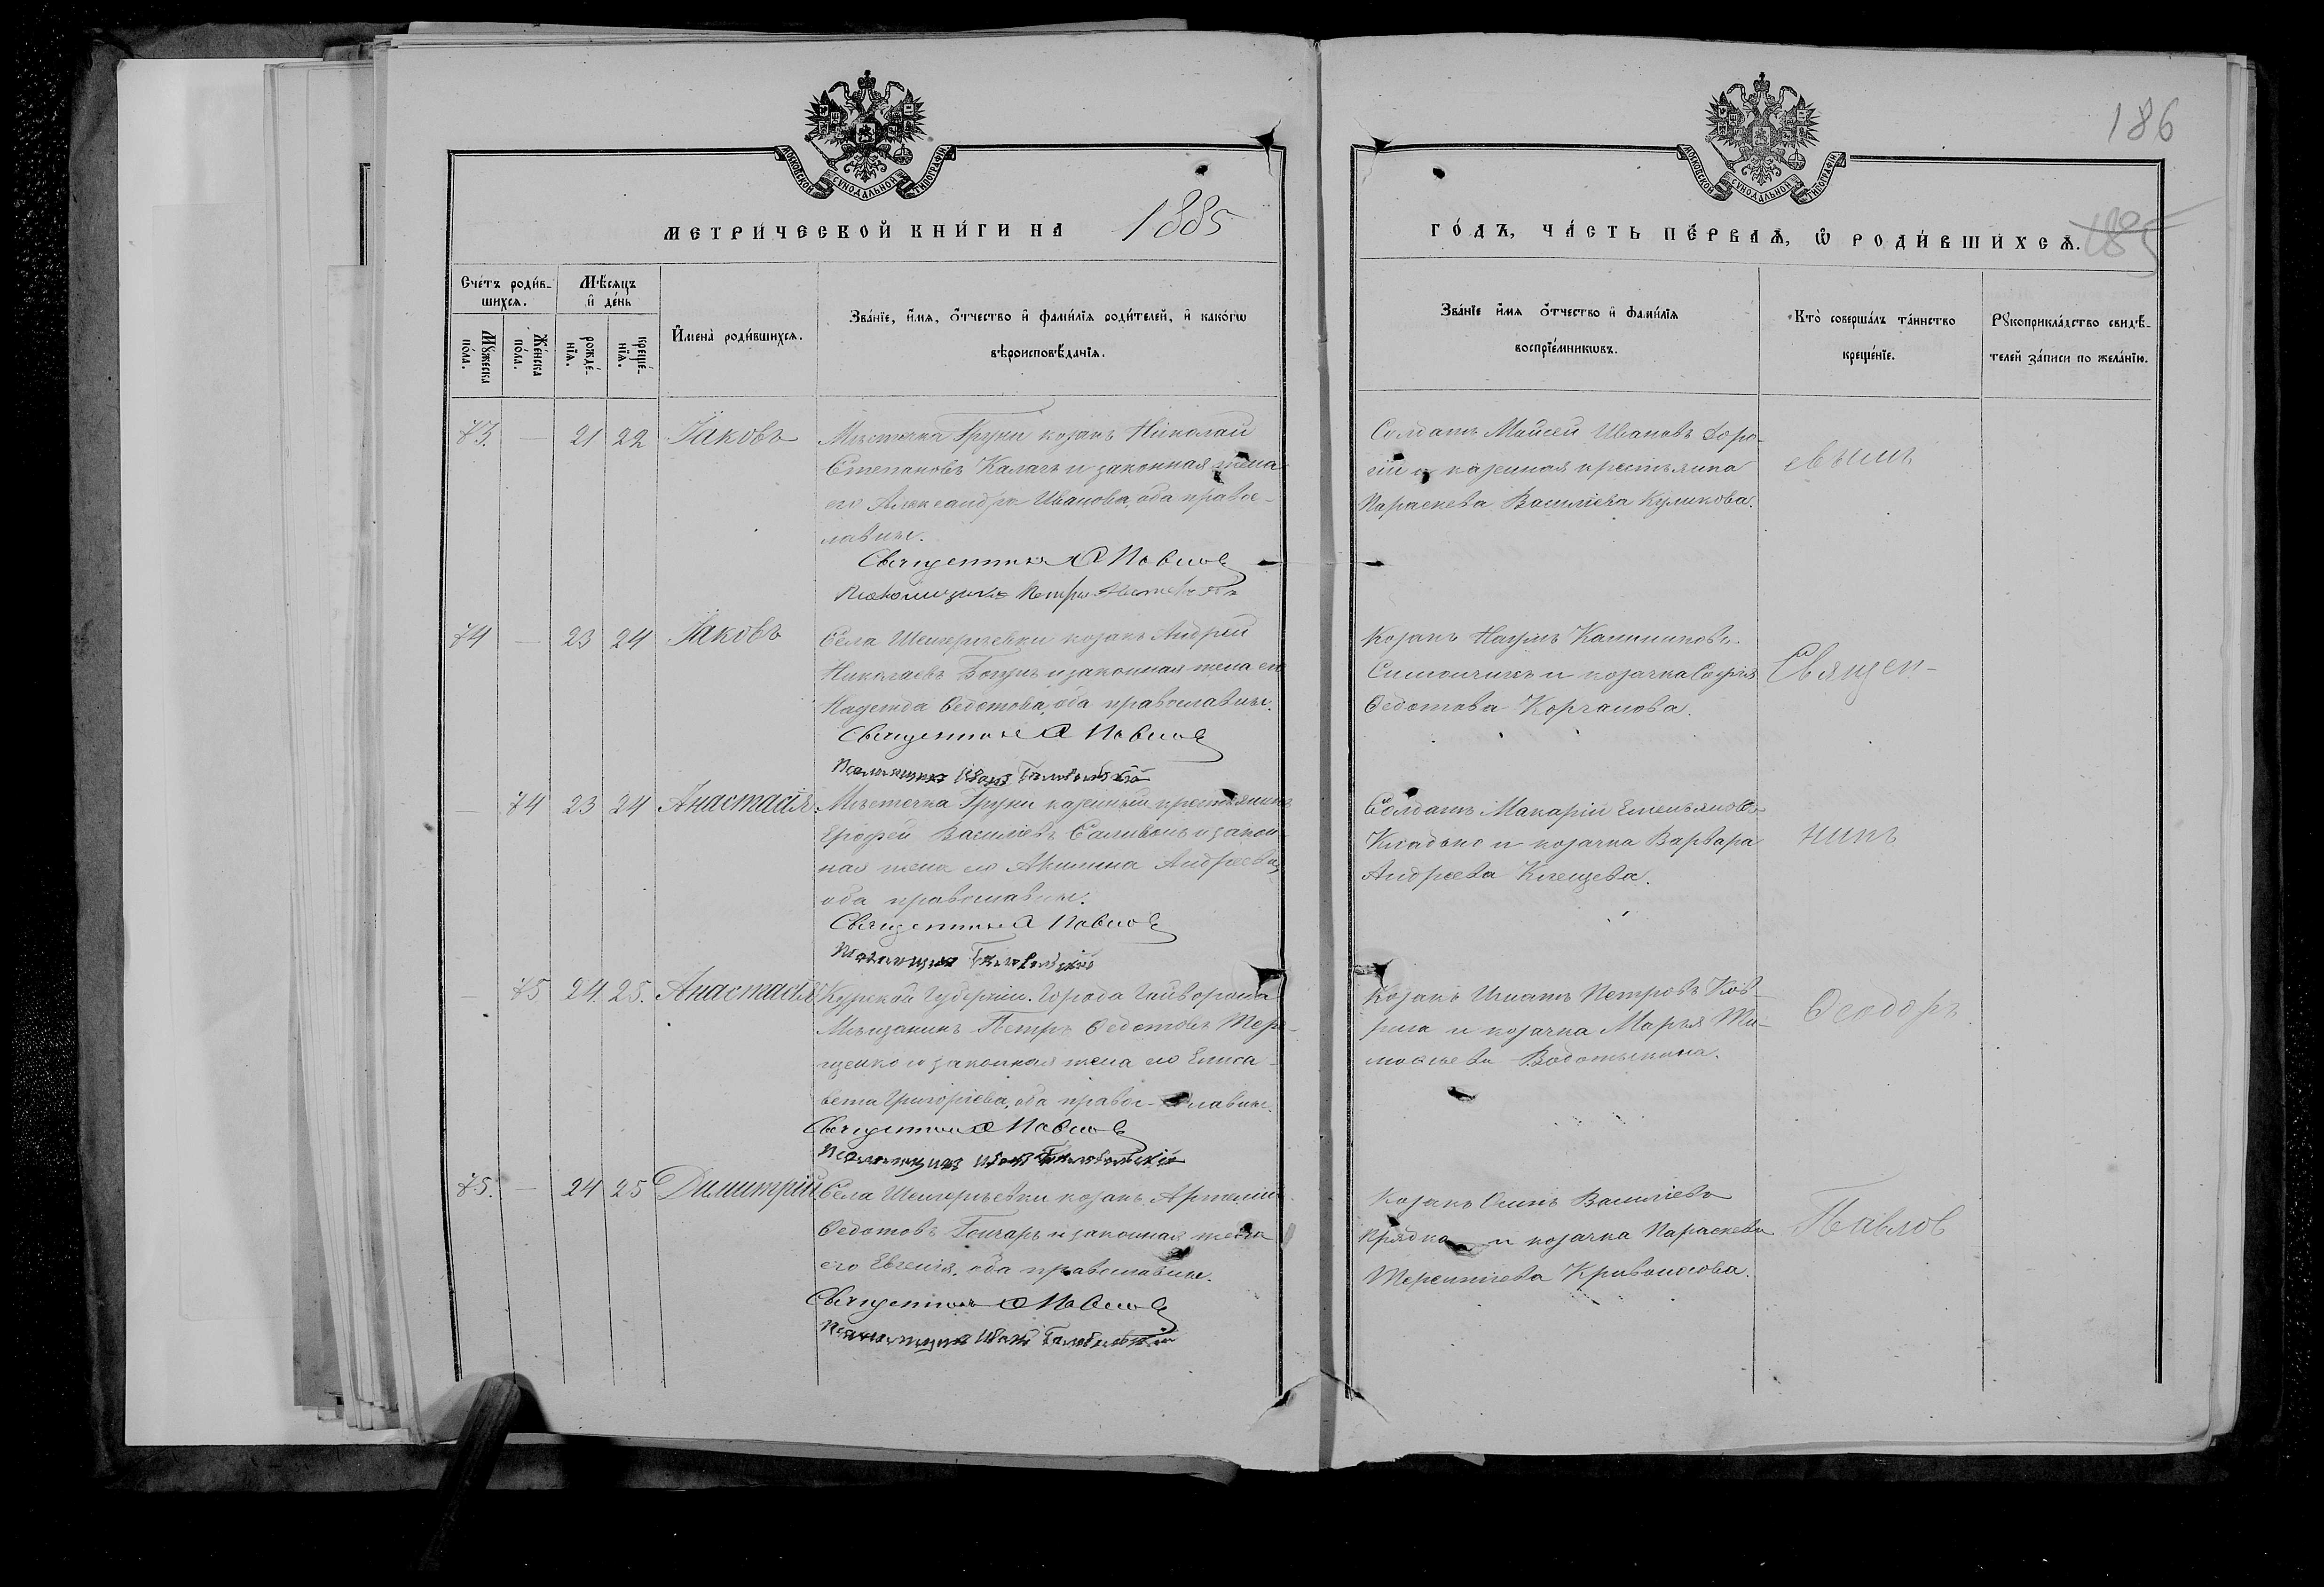 186
МОСКОВСКОЙ СѴНОДАЛЬНОЙ ТИПОГРАФІИ
МОСКОВСКОЙ СѴНОДАЛЬНОЙ ТИПОГРАФІИ
МЕТРИ́ЧЕСКОЙ КНИ́ГИ НА 1885
ГО́ДЪ, ЧА́СТЬ ПЕ́РВАѦ, Ѽ РОДИ́ВШИХСѦ.
185
Сче́тъ роди́в-
шихсѧ.
Мѣ́сѧцъ
и҆ де́нь
Мꙋ́жеска
по́ла.
Же́нска
по́ла.
рожде́-
нїѧ.
креще́-
нїѧ.
И҆мена̀ роди́вшихсѧ.
Зва́нїе, и҆́мѧ, ѻ҆́тчество и҆ фами́лїѧ роди́телей, и҆ како́гѡ
вѣроисповѣ́данїѧ.
Зва́нїе и҆́мѧ ѻ҆́тчество и҆ фами́лїѧ
воспрїе́мникѡвъ.
Кто̀ соверша́лъ та́инство
креще́нїе.
Рꙋкоприкла́дство свидѣ́-
телей за́писи по жела́нїю.
73. — 21 22 Іаковъ
Мѣстечка Груни козакъ Николай
Степановъ Калачъ и законная жена
его Александра Иванова, оба правос-
лавные.
Священникъ Ѳ Павловъ
Псаломщикъ Петръ
Солдатъ Мойсей Ивановъ
и казенная крестьянка
Параскева Василіева Куликова.
евымъ
74 — 23 24 Іаковъ
Села козакъ Андрей
Николаевъ Богунъ и законная жена его
Надежда Ѳедотова, оба православные.
Священникъ Ѳ Павловъ
Псаломщикъ Иванъ
Козакъ Наумъ Калиниковъ
и козачка Софія
Ѳедотова Корчанова.
Священ-
— 74 23 24 Анастасія
Мѣстечка Груни казенный крестьянинъ
Ерофей Василіевъ Саливонъ и закон-
ная жена его Акилина Андреева,
оба православные.
Священникъ Ѳ Павловъ
Псаломщикъ
Солдатъ Макарій Емельяновъ
Кладько и козачка Варвара
Андреева Клещева.
никъ
— 75 24. 25. Анастасія
Курской Губерніи. Города Гайворона
Мѣщанинъ Петръ Ѳедотовъ Тере-
щенко и законная жена его Елиса-
вета Григоріева, оба правос-лавные.
Священникъ Ѳ Павловъ
Псаломщикъ Иванъ
Козакъ Игнатъ Петровъ Ков-
рига и козачка Марѳа Ти-
моѳеева Водотыкина.
Ѳеодоръ
75. — 24 25 Димитрій
Села козакъ Артемій
Ѳедотовъ Гончаръ и законная жена
его Евгенія, оба православные.
Священникъ Ѳ Павловъ
Псаломщикъ Иванъ
Козакъ Осипъ Василіевъ
Крядка и козачка Параскева
Терентіева Кривоносова.
Павлов